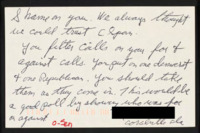 Shame on you. We always thought
we could trust C Span.
You filter calls on your for &
against calls. You put on one democrat
& one Republican. You should take
them as they come in. This would be
a good poll by showing who was for
or against.